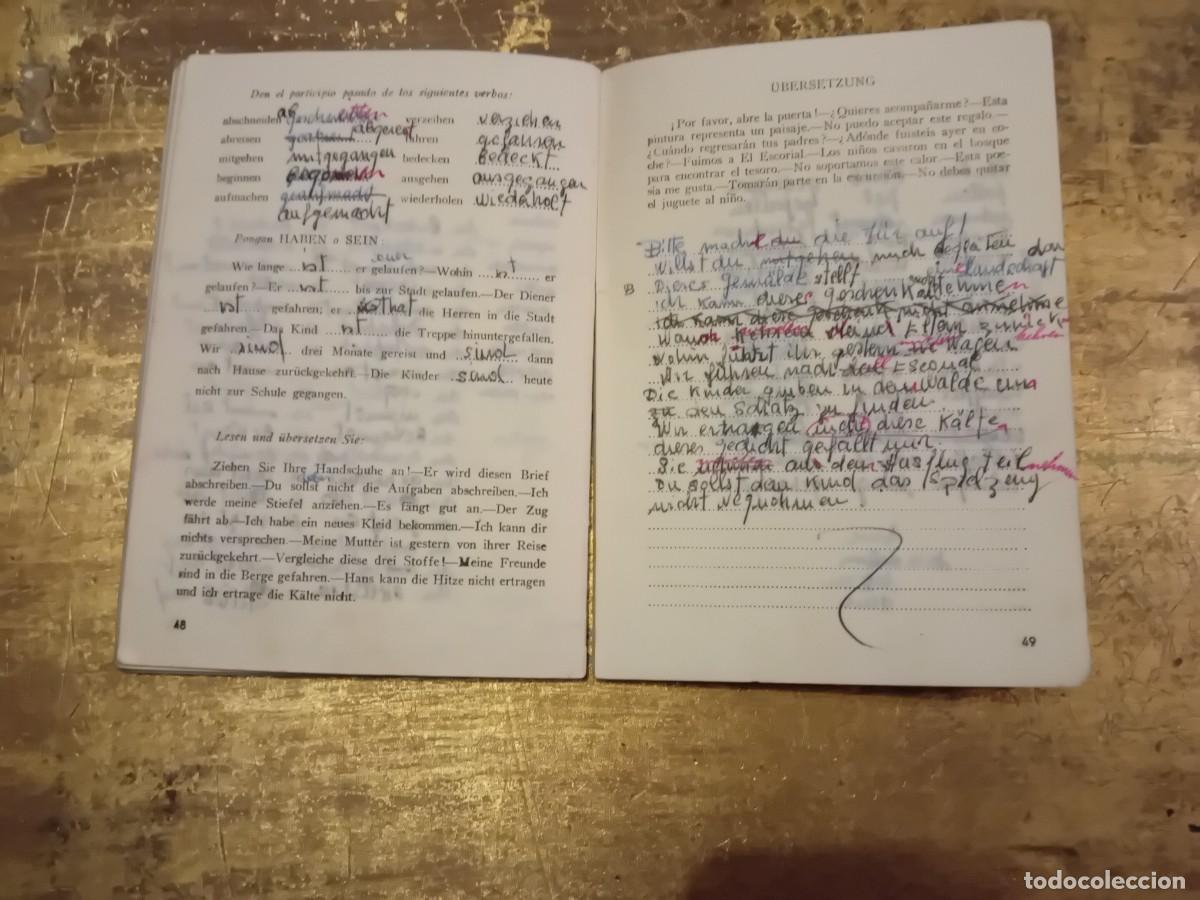 Den el participio pasado de los siguientes verbos:
abschneiden abgeschnitten verzeihen verziehen
abreisen abgereist führen gefahren
mitgehen mitgegangen bedecken bedeckt
beginnen ausgehen ausgegangen
aufmachen geaufmacht wiederholen wiederholt
aufgemacht
Pongan HABEN o SEIN:
Wie lange ist er gelaufen?—Wohin ist er
gelaufen?—Er ist bis zur Stadt gelaufen.—Der Diener
ist gefahren; er hat die Herren in die Stadt
gefahren.—Das Kind ist die Treppe hinuntergefallen.
Wir sind drei Monate gereist und sind dann
nach Hause zurückgekehrt.—Die Kinder sind heute
nicht zur Schule gegangen.
Lesen und übersetzen Sie:
Ziehen Sie Ihre Handschuhe an!—Er wird diesen Brief
abschreiben.—Du sollst nicht die Aufgaben abschreiben.—Ich
werde meine Stiefel anziehen.—Es fängt gut an.—Der Zug
fährt ab.—Ich habe ein neues Kleid bekommen.—Ich kann dir
nichts versprechen.—Meine Mutter ist gestern von ihrer Reise
zurückgekehrt.—Vergleiche diese drei Stoffe!—Meine Freunde
sind in die Berge gefahren.—Hans kann die Hitze nicht ertragen
und ich ertrage die Kälte nicht.
48
ÜBERSETZUNG
¡Por favor, abre la puerta!—¿Quieres acompañarme?—Esta
pintura representa un paisaje.—No puedo aceptar este regalo.—
¿Cuándo regresarán tus padres?—¿Adónde fuisteis ayer en co-
che?—Fuimos a El Escorial.—Los niños cavaron en el bosque
para encontrar el tesoro.—No soportamos este calor.—Esta poe-
sía me gusta.—Tomarán parte en la excursión.—No debes quitar
el juguete al niño.
Bitte mach du die Tür auf!
Willst du mitgehen mich
Dieses Gemälde stellt eine Landschaft dar
B ich kann dieses Geschenk nicht annehmen
ich kann diese Geschenk nicht annehme
Wann deine Eltern zurück kehren
Wohin fuhrt ihr gestern Wagen
Wir fuhren nach Escorial
Die Kinder gruben in dem Walde um
zu den Schatz zu finden.
Wir ertragen nicht diese Kälte
dieses gedicht gefällt mir.
Sie an dem Ausflug teil nehmen
Du sollst dem Kind das Spielzeug
nicht wegnehmen.
49
todocoleccion